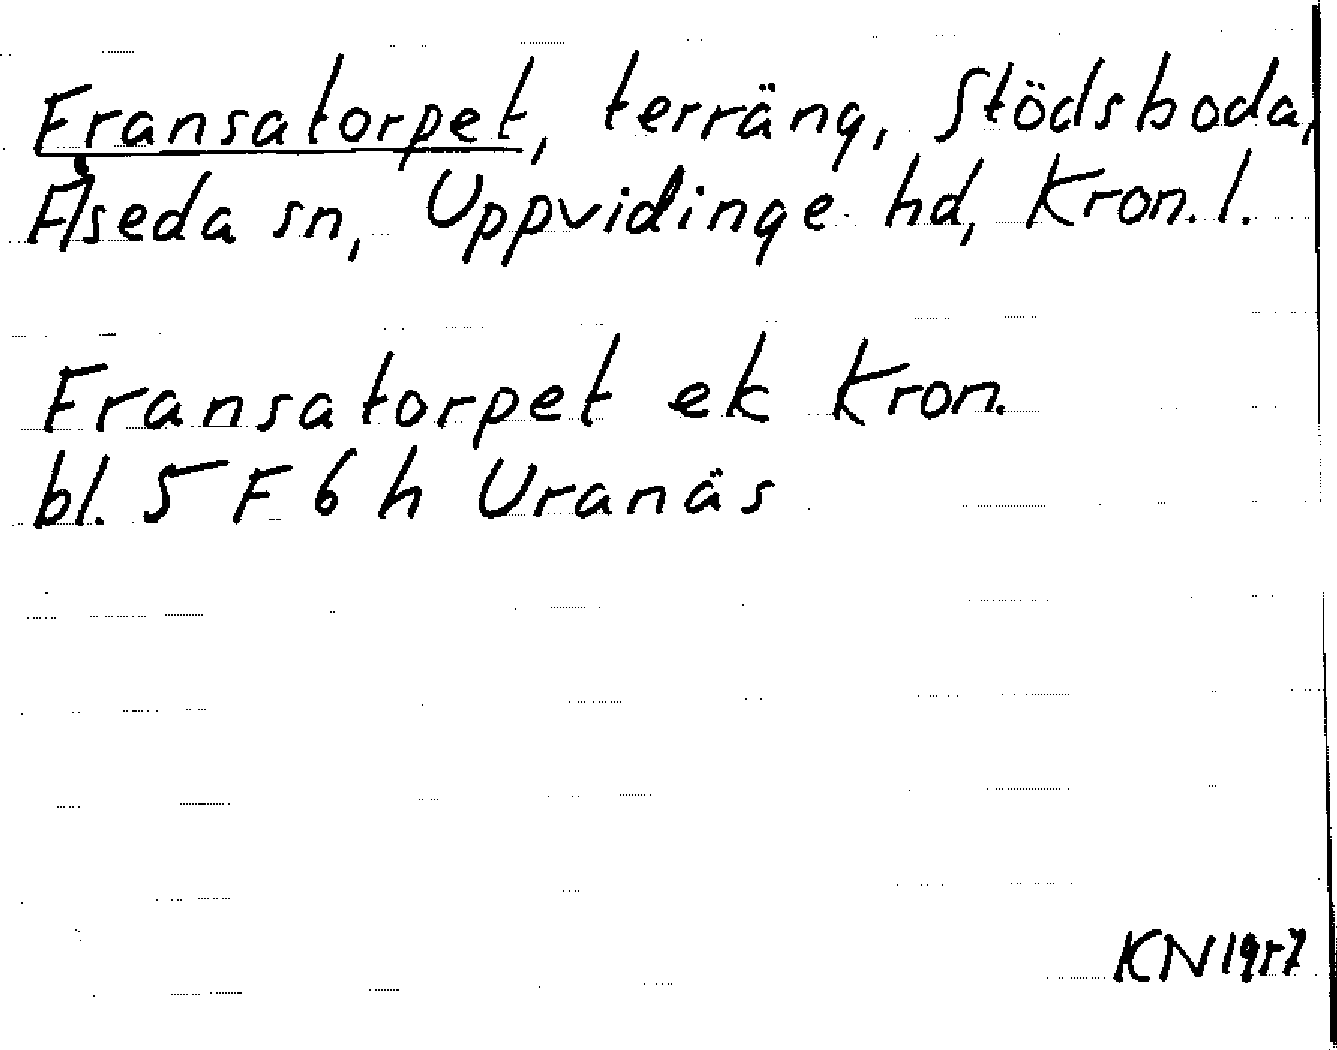 Fransatorpet, terräng, Stödsboda,
Åseda sn, Uppvidinge hd, Kron. l.
Fransatorpet ek Kron.
bl. 5 F 6 h Uranäs
KN 1957